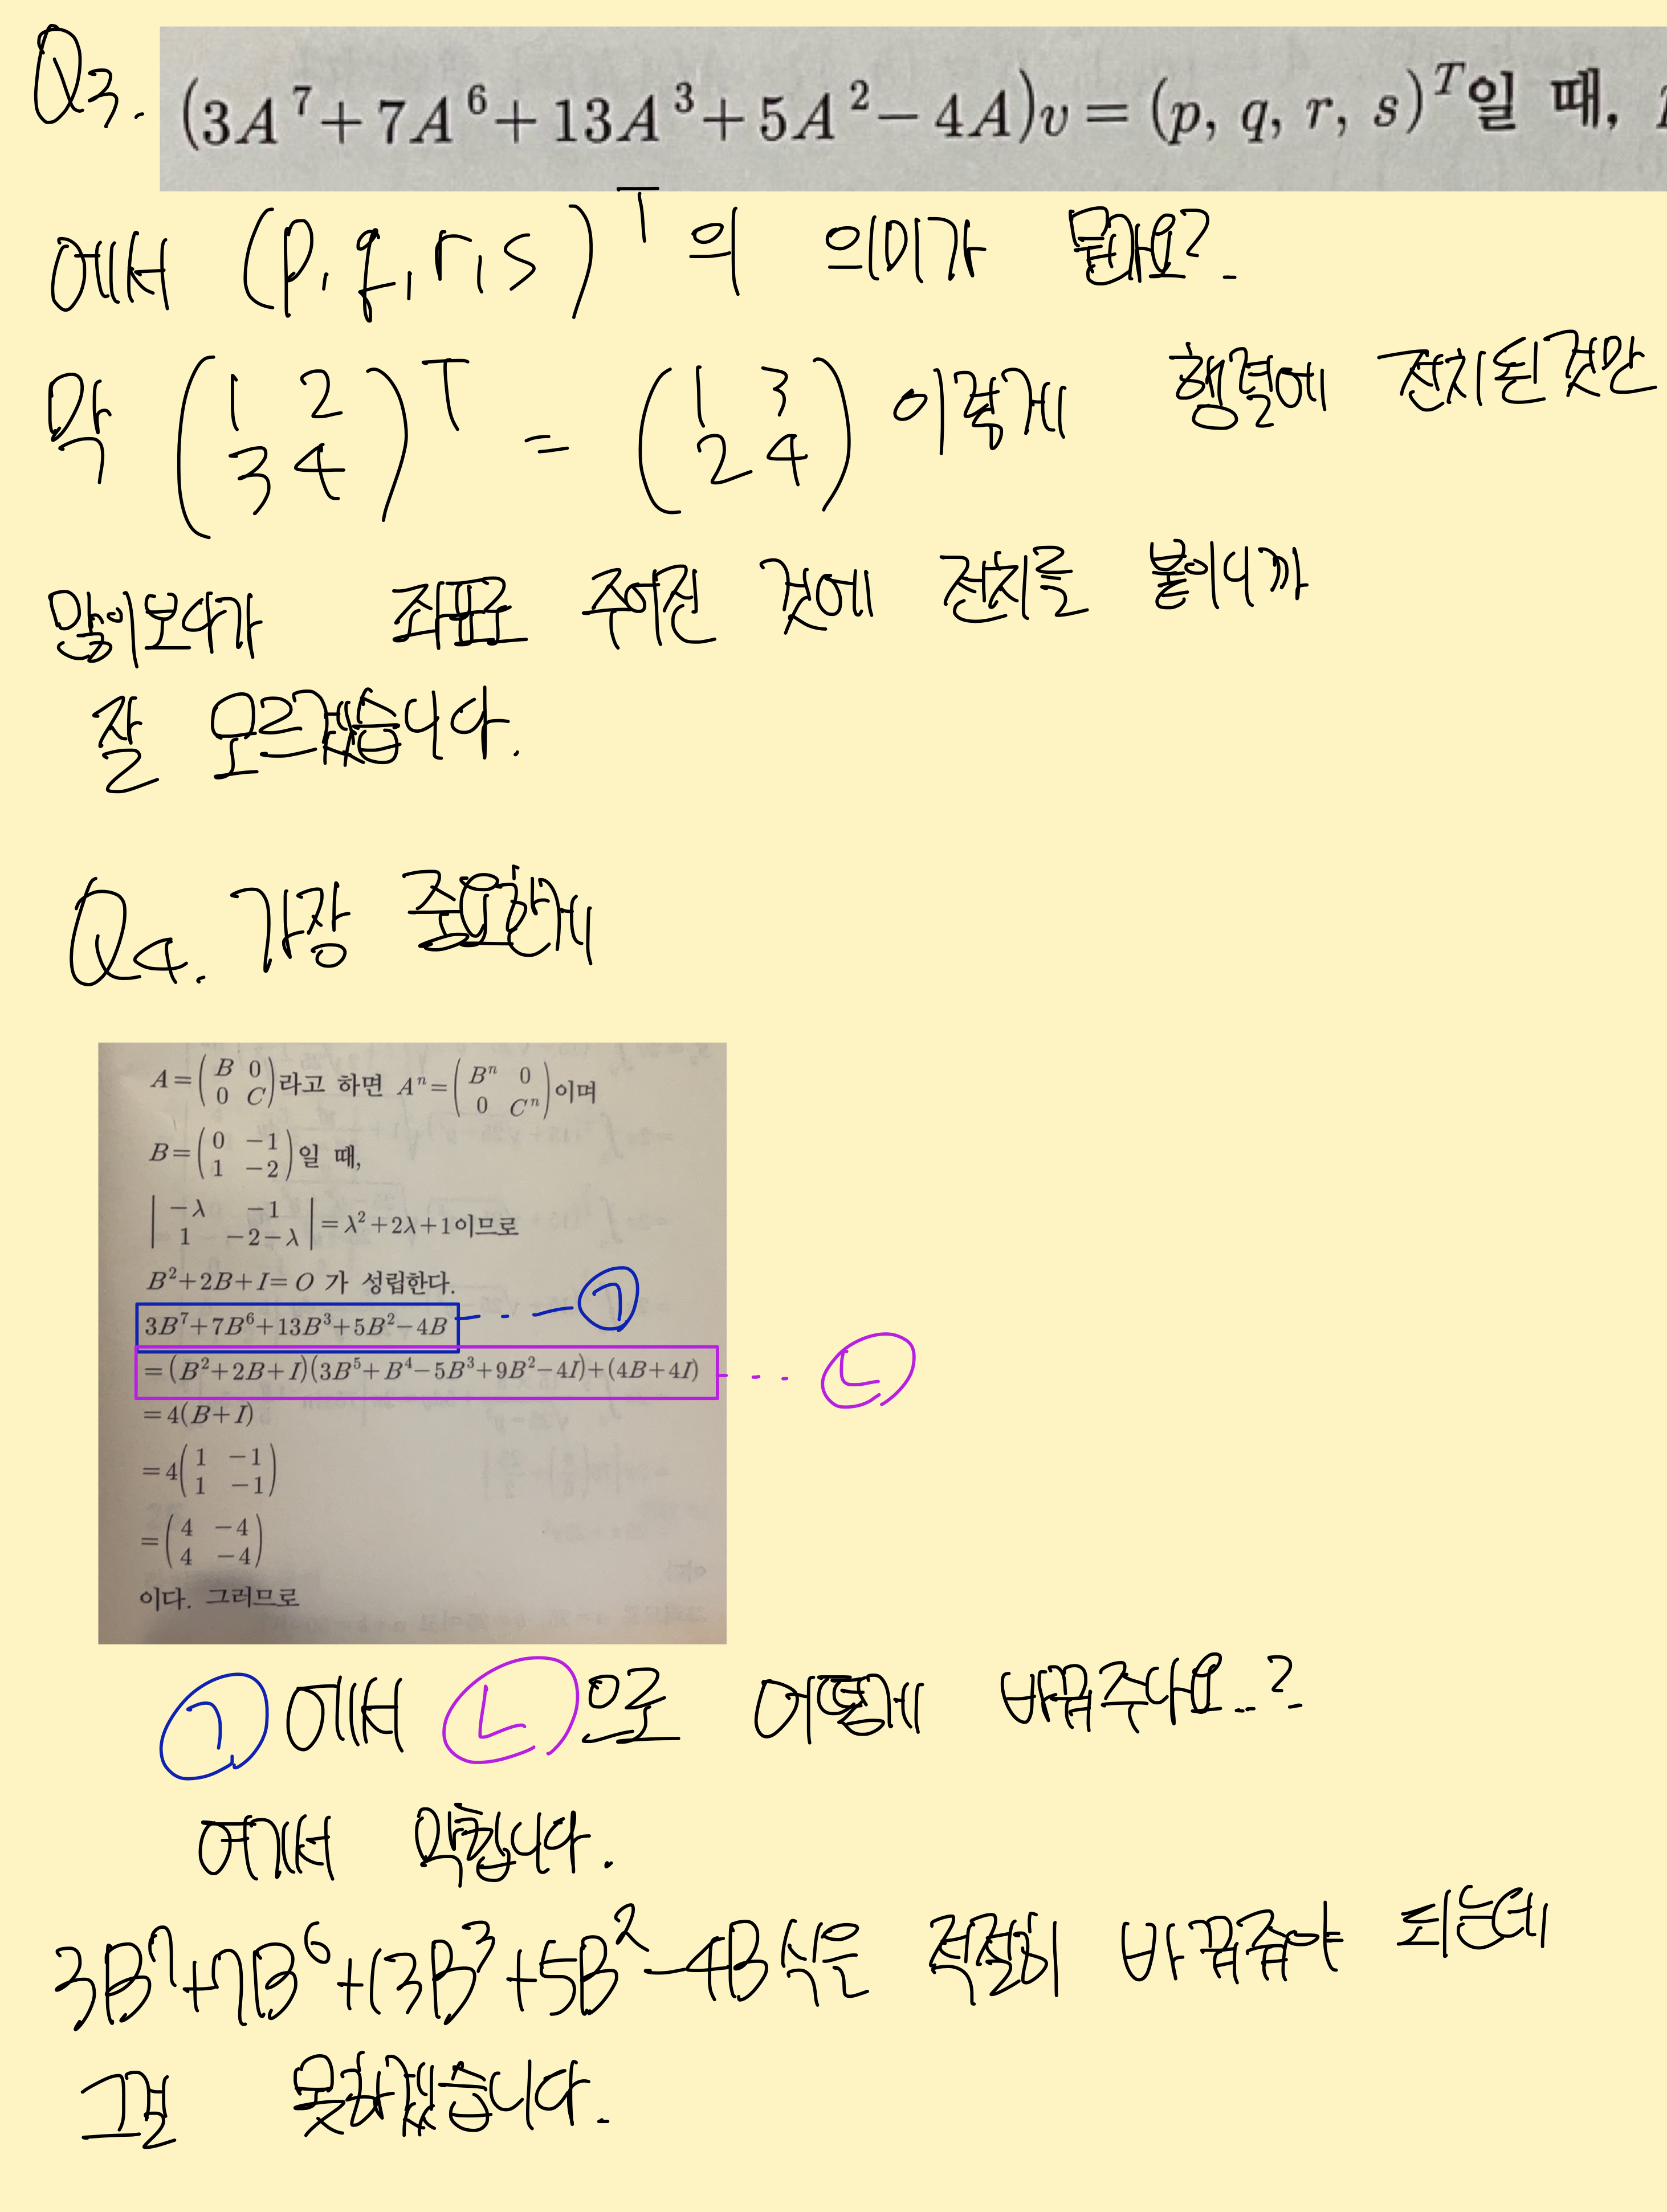 Q3. (3A⁷+7A⁶+13A³+5A²−4A)v=(p, q, r, s)ᵀ일 때,
에서 (p, q, r, s)ᵀ의 의미가 뭡가요?
막 (1 2; 3 4)ᵀ = (1 3; 2 4) 이렇게 행렬에 전치된것만
많이보다가 좌표로 주어진 것에 전치를 붙이니까
잘 모르겠습니다.
Q4. 가장 중요한게
A=(B 0; 0 C)라고 하면 Aⁿ=(Bⁿ 0; 0 Cⁿ)이며
B=(0 −1; 1 −2)일 때,
|−λ −1; 1 −2−λ|=λ²+2λ+1이므로
B²+2B+I=O 가 성립한다.
3B⁷+7B⁶+13B³+5B²−4B ... ㄱ
=(B²+2B+I)(3B⁵+B⁴−5B³+9B²−4I)+(4B+4I) ... ㄴ
=4(B+I)
=4(1 −1; 1 −1)
=(4 −4; 4 −4)
이다. 그러므로
ㄱ에서 ㄴ으로 어떻게 바꿔주나요...?
여기서 막힙니다.
3B⁷+7B⁶+13B³+5B²−4B 식은 적절히 바꿔줘야 되는데
그걸 못하겠습니다.